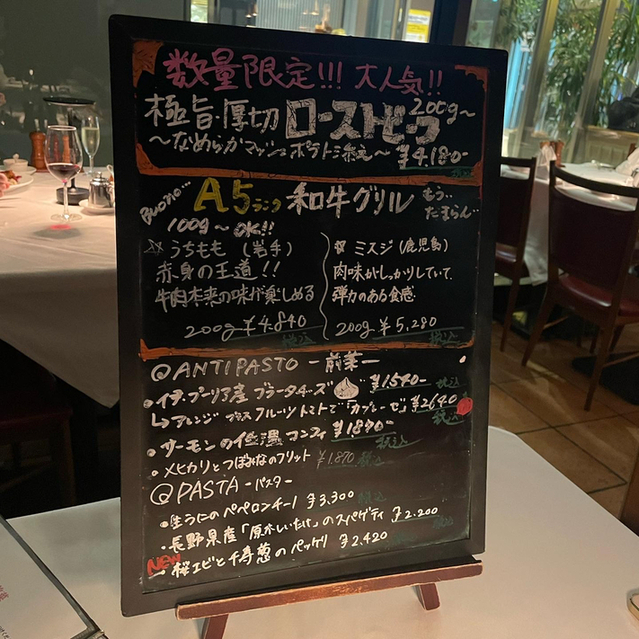 数量限定!!! 大人気!!
極旨・厚切 ローストビーフ 200g〜
〜なめらかマッシュポテト添え〜 ¥4,180-
税込
Buono... A5ランク 和牛グリル もう..たまらん..
100g〜OK!!
☆ うちもも (岩手)
赤身の王道!!
牛肉本来の味が楽しめる
200g ¥4,840
税込
☆ ミスジ (鹿児島)
肉味がしっかりしていて
弾力のある食感
200g ¥5,280
税込
@ANTIPASTO -前菜-
・伊・プーリア産 ブラータチーズ ¥1540- 税込
↳アレンジ プラス フルーツトマトで「カプレーゼ」¥2640 税込
・サーモンの低温コンフィ ¥1,870- 税込
・メヒカリとつぼみなのフリット ¥1,870 税込
@PASTA -パスタ-
・生うにのペペロンチーノ ¥3,300 税込
・長野県産「原木しいたけ」のスパゲティ ¥2,200 税込
NEW
・桜エビと千寿葱のパッケリ ¥2,420 税込